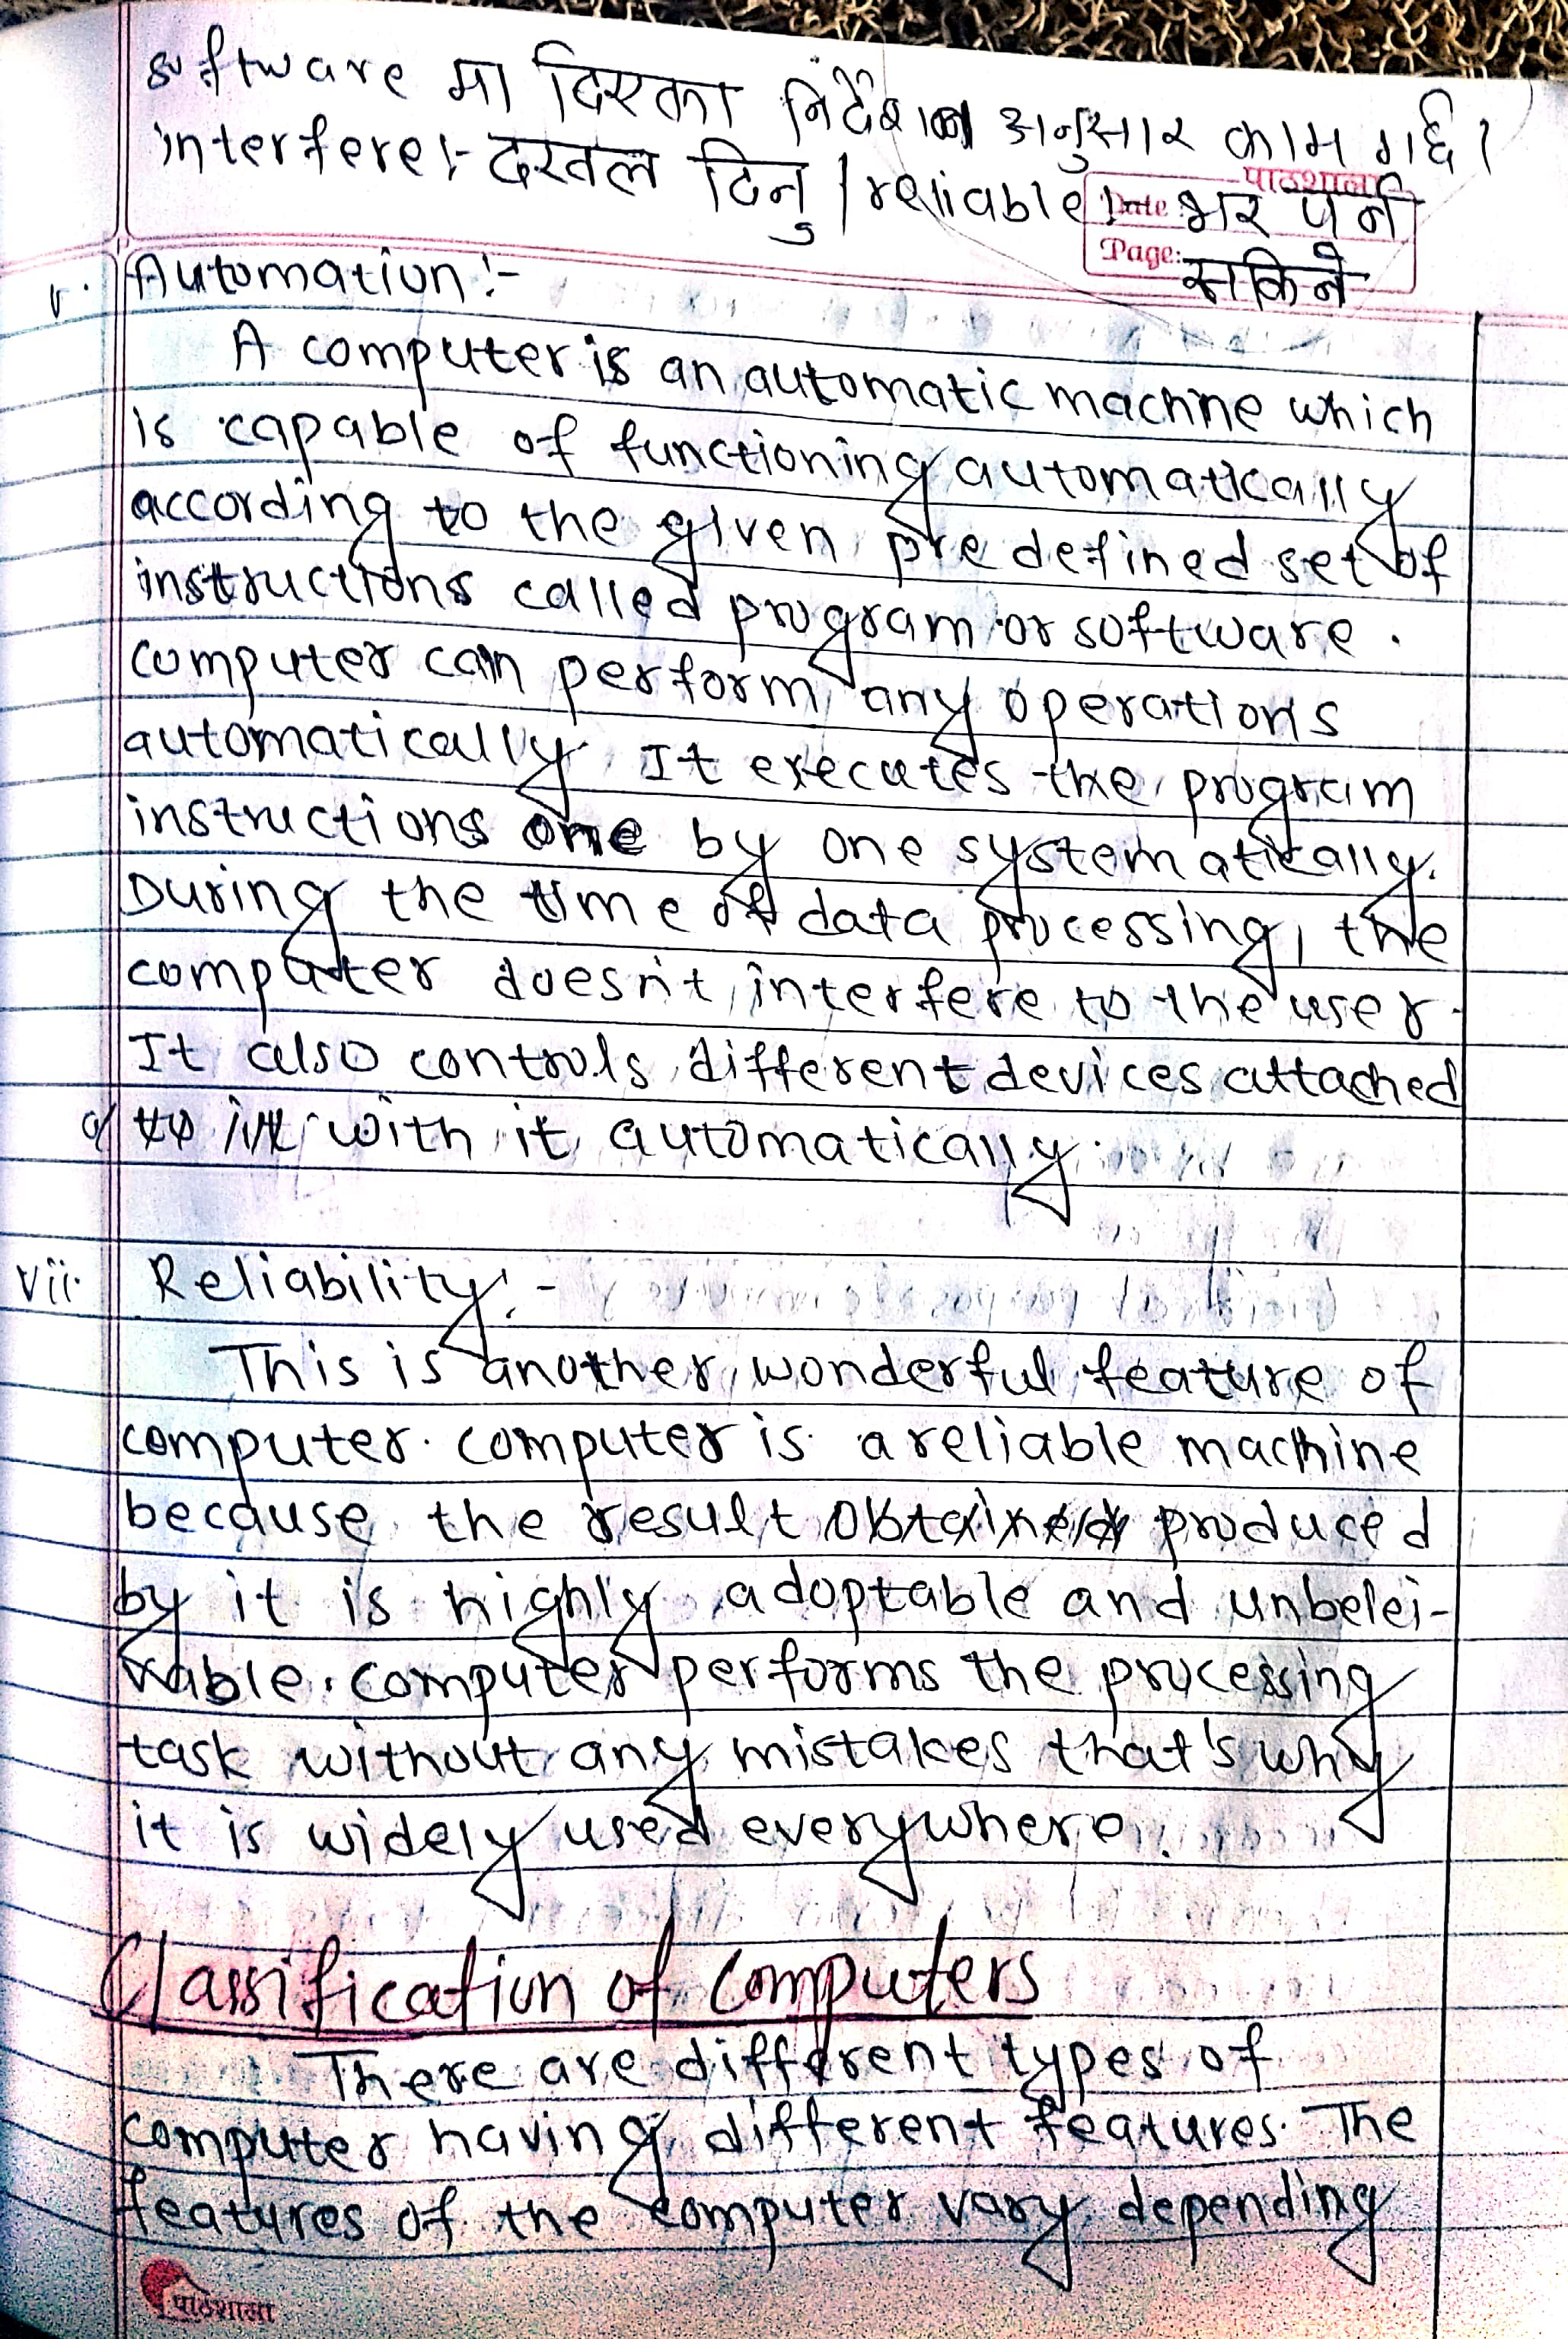 software मा दिएका निर्देशन अनुसार काम गर्छ।
interfere:- दखल दिनु / reliable:- भर पर्न
पाठशाला
Date
Page:
सकिने
v. Automation:-
A computer is an automatic machine which
is capable of functioning automatically
according to the given pre defined set of
instructions called program or software.
computer can perform any operations
automatically. It executes the program
instructions one by one systematically.
During the time of data processing, the
computer doesn't interfere to the user.
It also controls different devices attached
with it automatically.
vii. Reliability:-
This is another wonderful feature of
computer. computer is a reliable machine
because the result obtained produced
by it is highly adoptable and unbelei-
vable. computer performs the processing
task without any mistakes that's why
it is widely used everywhere.
Classification of Computers
There are different types of
computer having different features. The
features of the computer vary depending
पाठशाला